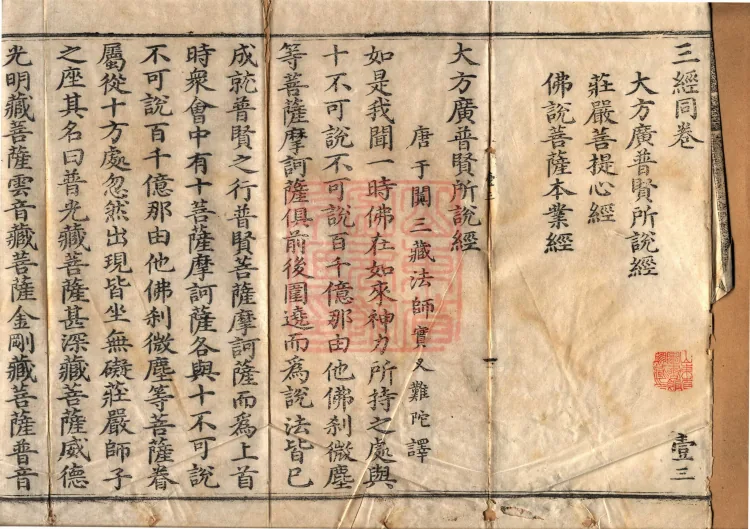 三經同卷
大方廣普賢所說經
莊嚴菩提心經
佛說菩薩本業經
壹三
大方廣普賢所說經
唐于闐三藏法師實叉難陀譯
如是我聞一時佛在如來神力所持之處與
十不可說不可說百千億那由他佛剎微塵
等菩薩摩訶薩俱前後圍遶而爲說法皆已
成就普賢之行普賢菩薩摩訶薩而爲上首
時衆會中有十菩薩摩訶薩各與十不可說
不可說百千億那由他佛剎微塵等菩薩眷
屬從十方處忽然出現皆坐無礙莊嚴師子
之座其名曰普光藏菩薩甚深藏菩薩威德
光明藏菩薩雲音藏菩薩金剛藏菩薩普音